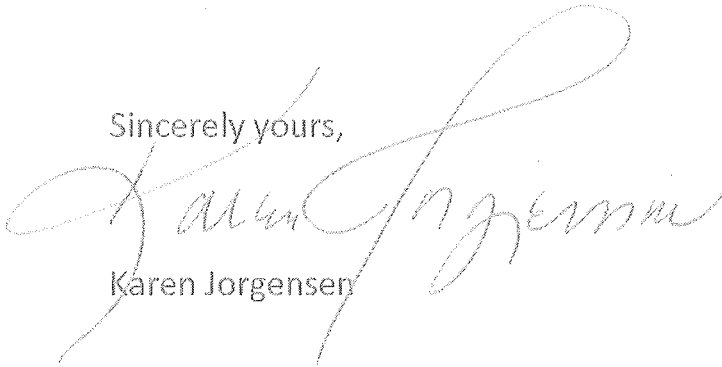 Sincerely yours,
Karen Jorgensen
Karen Jorgensen